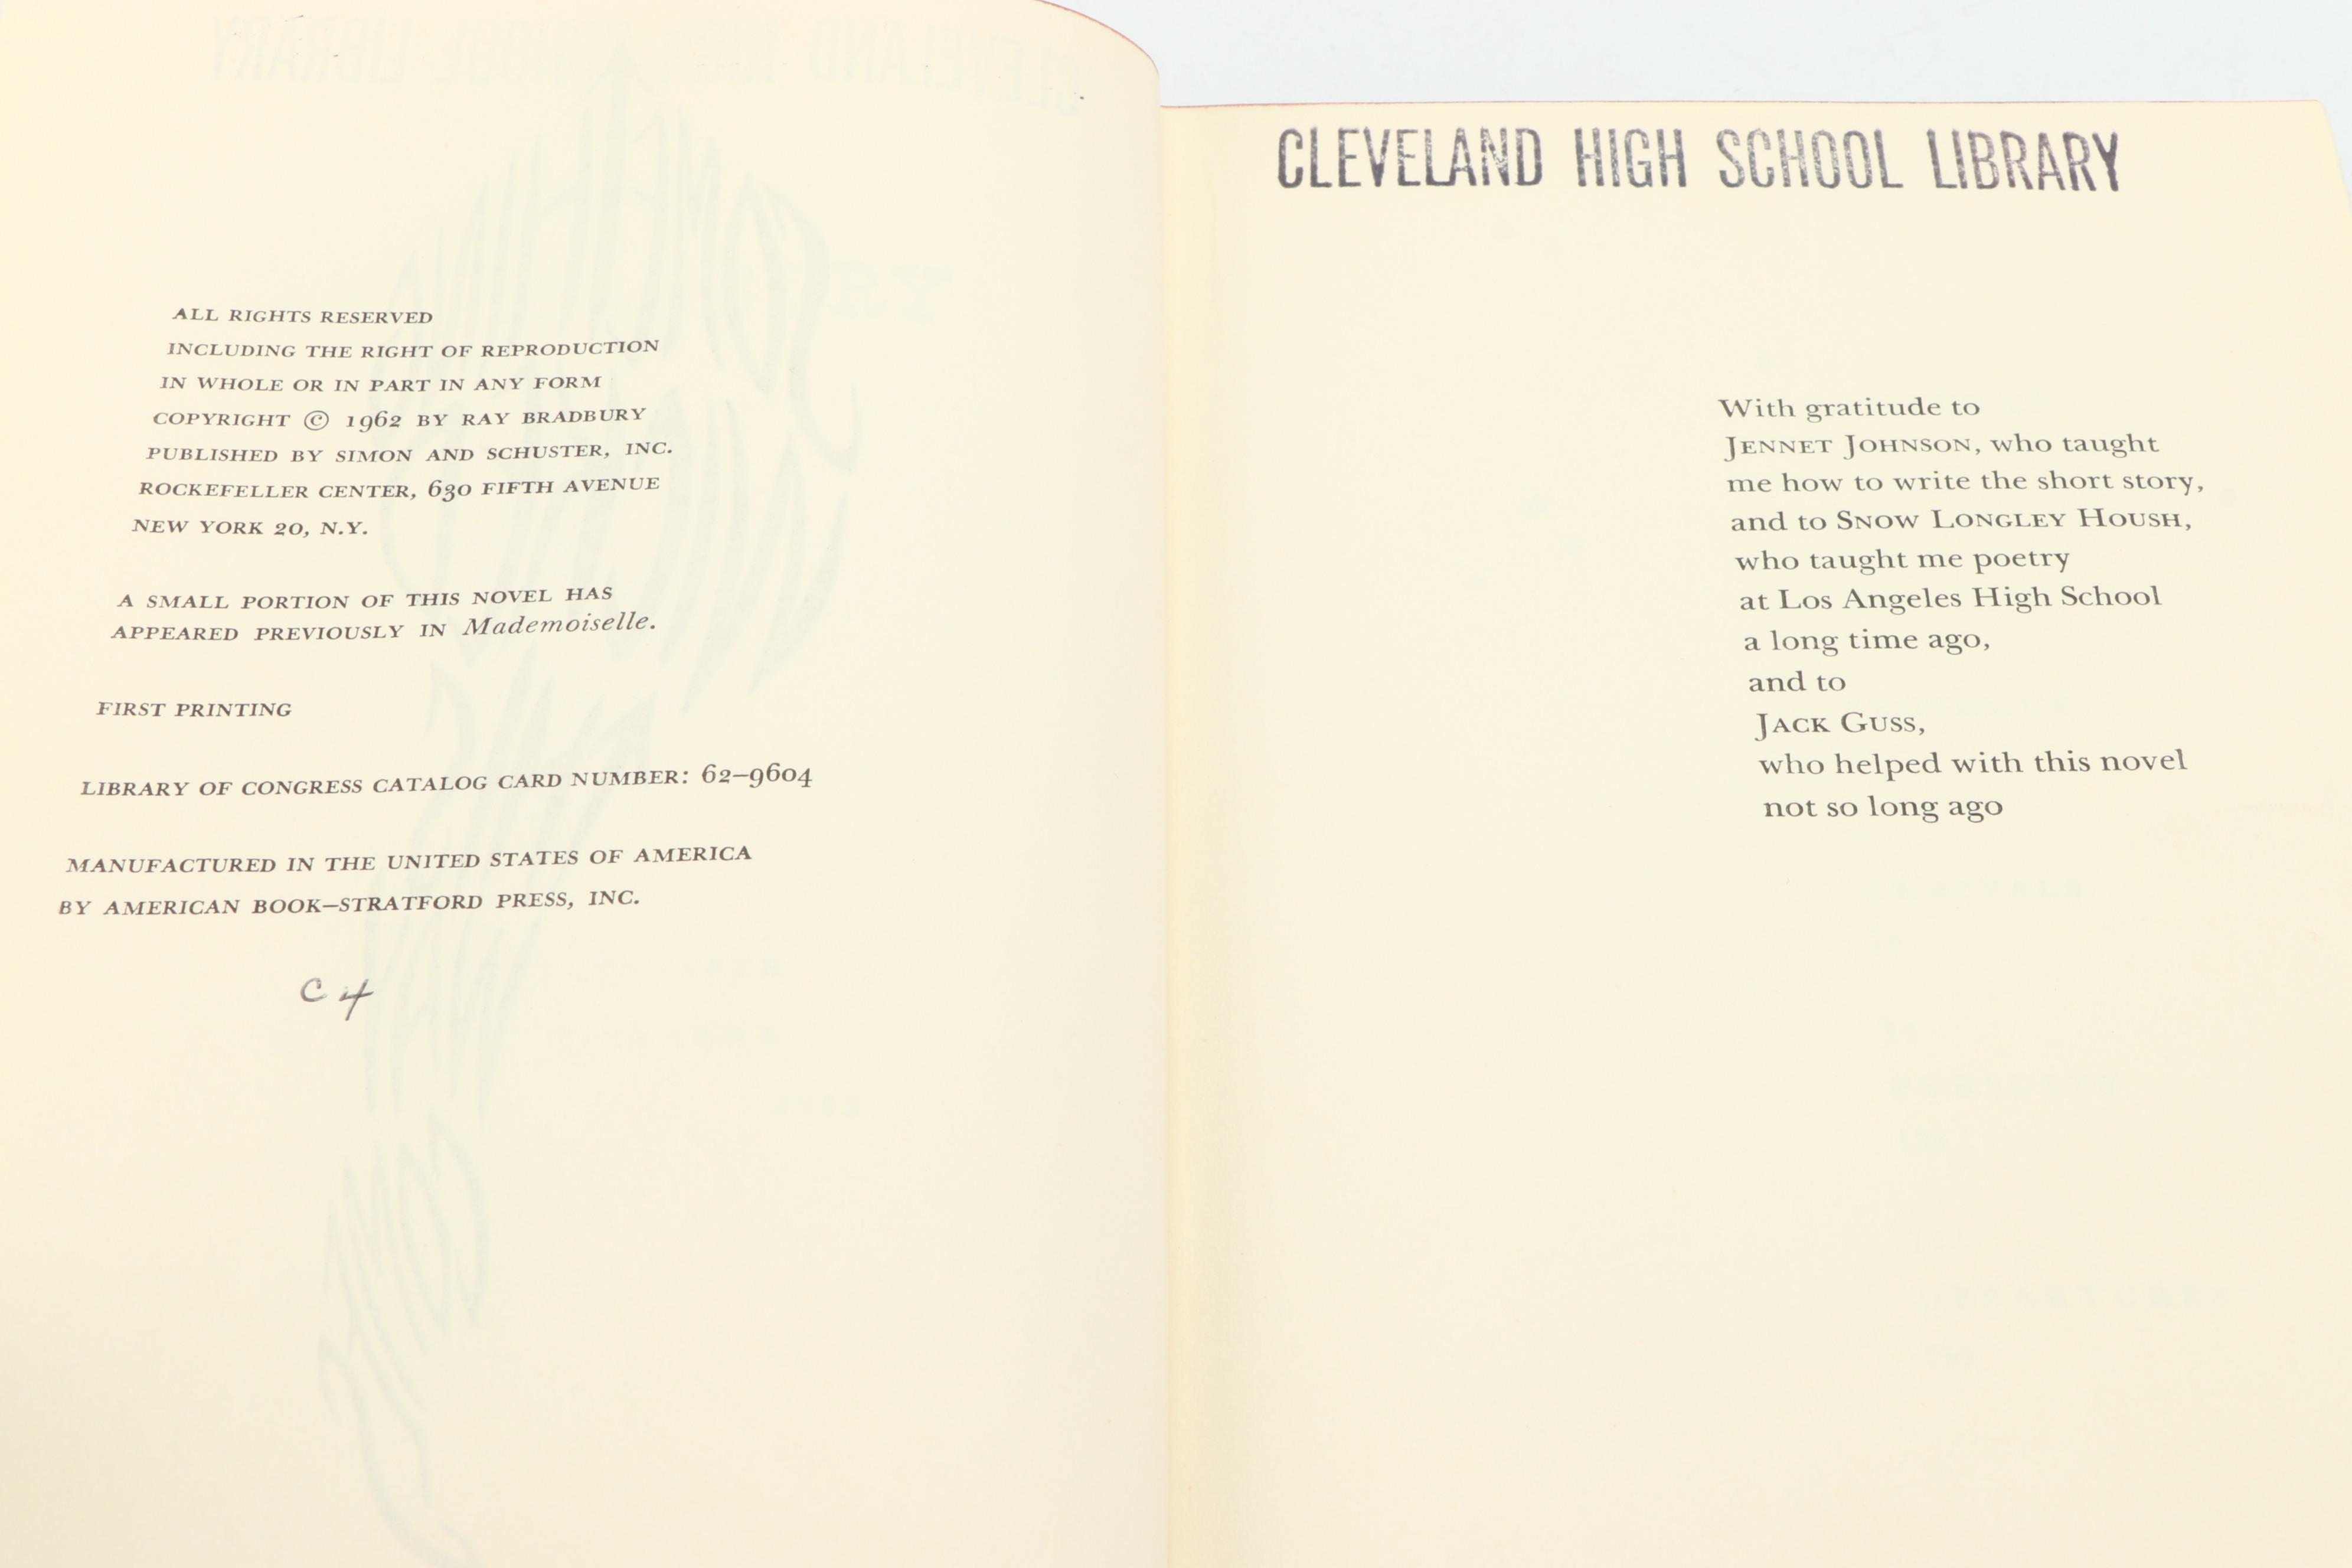 ALL RIGHTS RESERVED
INCLUDING THE RIGHT OF REPRODUCTION
IN WHOLE OR IN PART IN ANY FORM
COPYRIGHT © 1962 BY RAY BRADBURY
PUBLISHED BY SIMON AND SCHUSTER, INC.
ROCKEFELLER CENTER, 630 FIFTH AVENUE
NEW YORK 20, N.Y.
A SMALL PORTION OF THIS NOVEL HAS
APPEARED PREVIOUSLY IN Mademoiselle.
FIRST PRINTING
LIBRARY OF CONGRESS CATALOG CARD NUMBER: 62–9604
MANUFACTURED IN THE UNITED STATES OF AMERICA
BY AMERICAN BOOK–STRATFORD PRESS, INC.
C4
CLEVELAND HIGH SCHOOL LIBRARY
With gratitude to
JENNET JOHNSON, who taught
me how to write the short story,
and to SNOW LONGLEY HOUSH,
who taught me poetry
at Los Angeles High School
a long time ago,
and to
JACK GUSS,
who helped with this novel
not so long ago